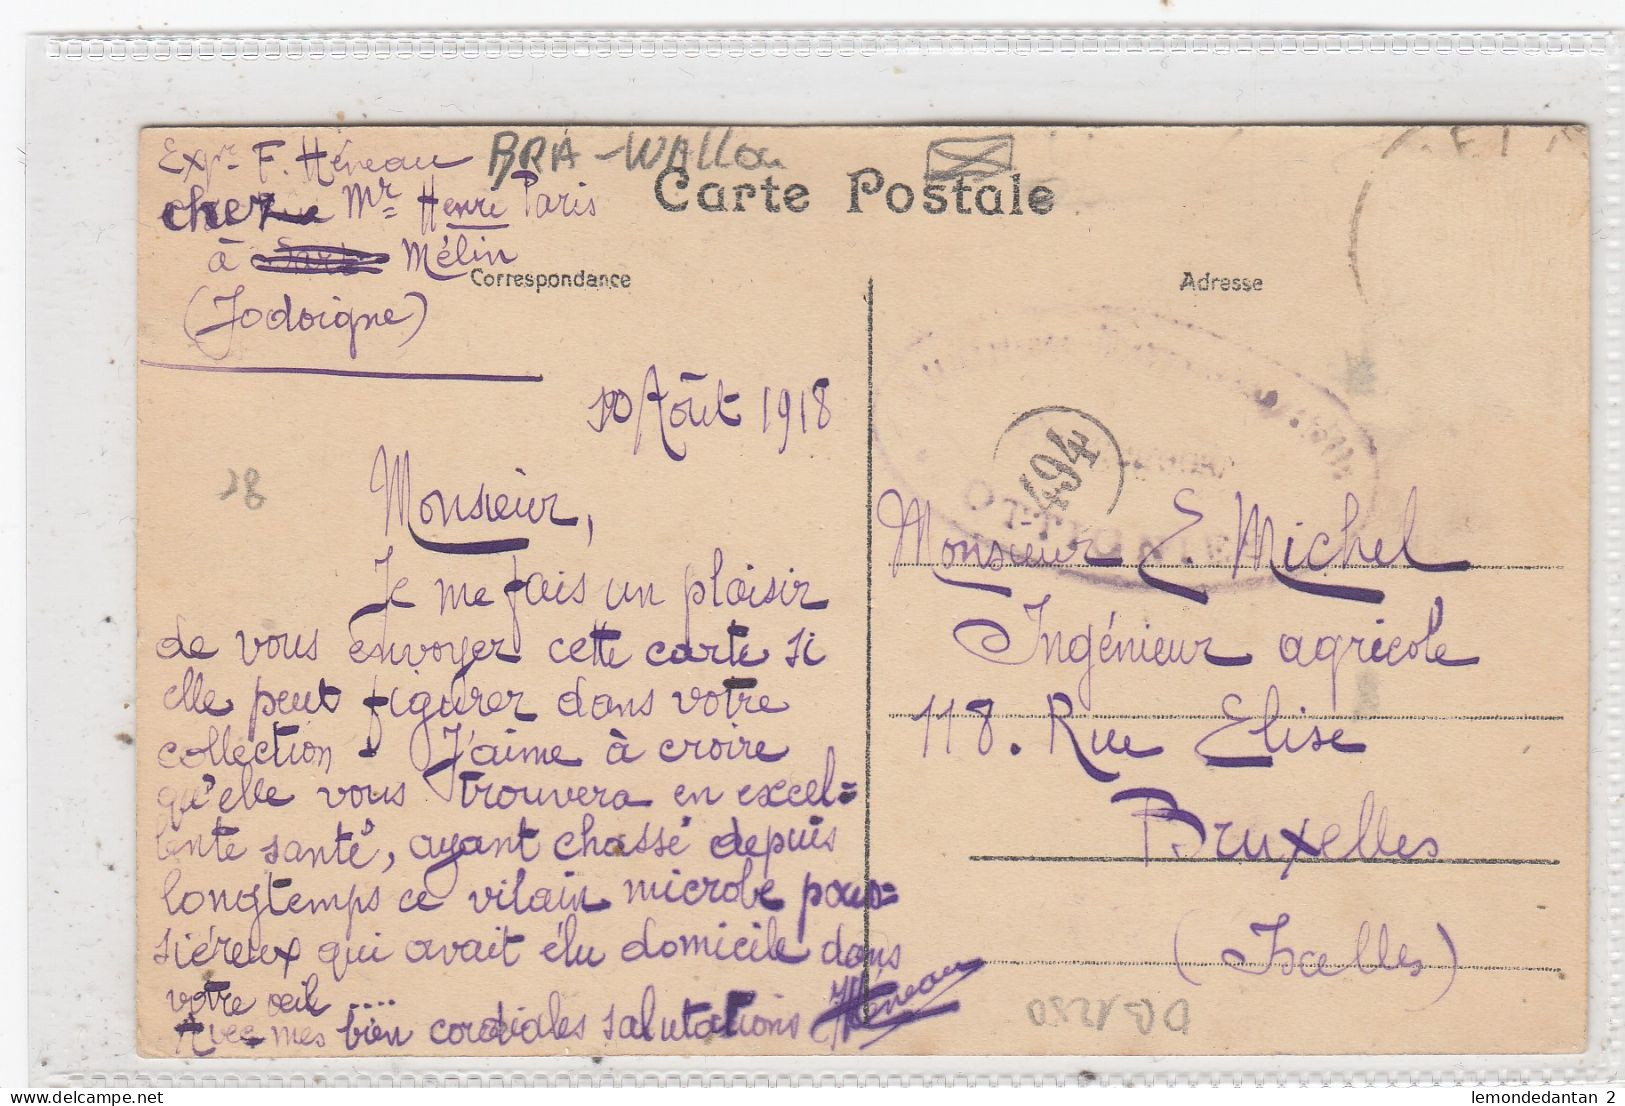 Expr F. Héneau
chez Mr Henri Paris
à Mélin
(Jodoigne)
BRA-WALLon
Carte Postale
Correspondance
Adresse
10 Août 1918
28
Monsieur,
Je me fais un plaisir
de vous envoyer cette carte si
elle peut figurer dans votre
collection - J'aime à croire
qu'elle vous trouvera en excel=
lente santé, ayant chassé depuis
longtemps ce vilain microbe pous=
siéreux qui avait élu domicile dans
votre œil ....
Avec mes bien cordiales salutations Héneau
494
Monsieur E. Michel
Ingénieur agricole
118. Rue Elise
Bruxelles
(Ixelles)
DB1280
www.delcampe.net
lemondedantan 2